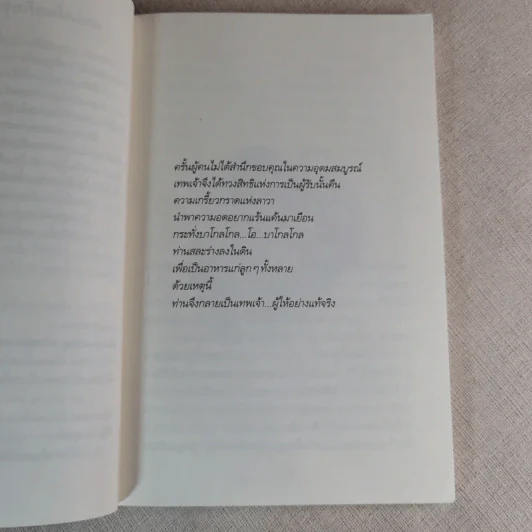 ครั้นผู้คนไม่ได้สำนึกขอบคุณในความอุดมสมบูรณ์
เทพเจ้าจึงได้ทวงสิทธิแห่งการเป็นผู้รับนั้นคืน
ความเกรี้ยวกราดแห่งลาวา
นำพาความอดอยากแร้นแค้นมาเยือน
กระทั่งบาโกลโกล...โอ...บาโกลโกล
ท่านสละร่างลงในดิน
เพื่อเป็นอาหารแก่ลูก ๆ ทั้งหลาย
ด้วยเหตุนี้
ท่านจึงกลายเป็นเทพเจ้า...ผู้ให้อย่างแท้จริง